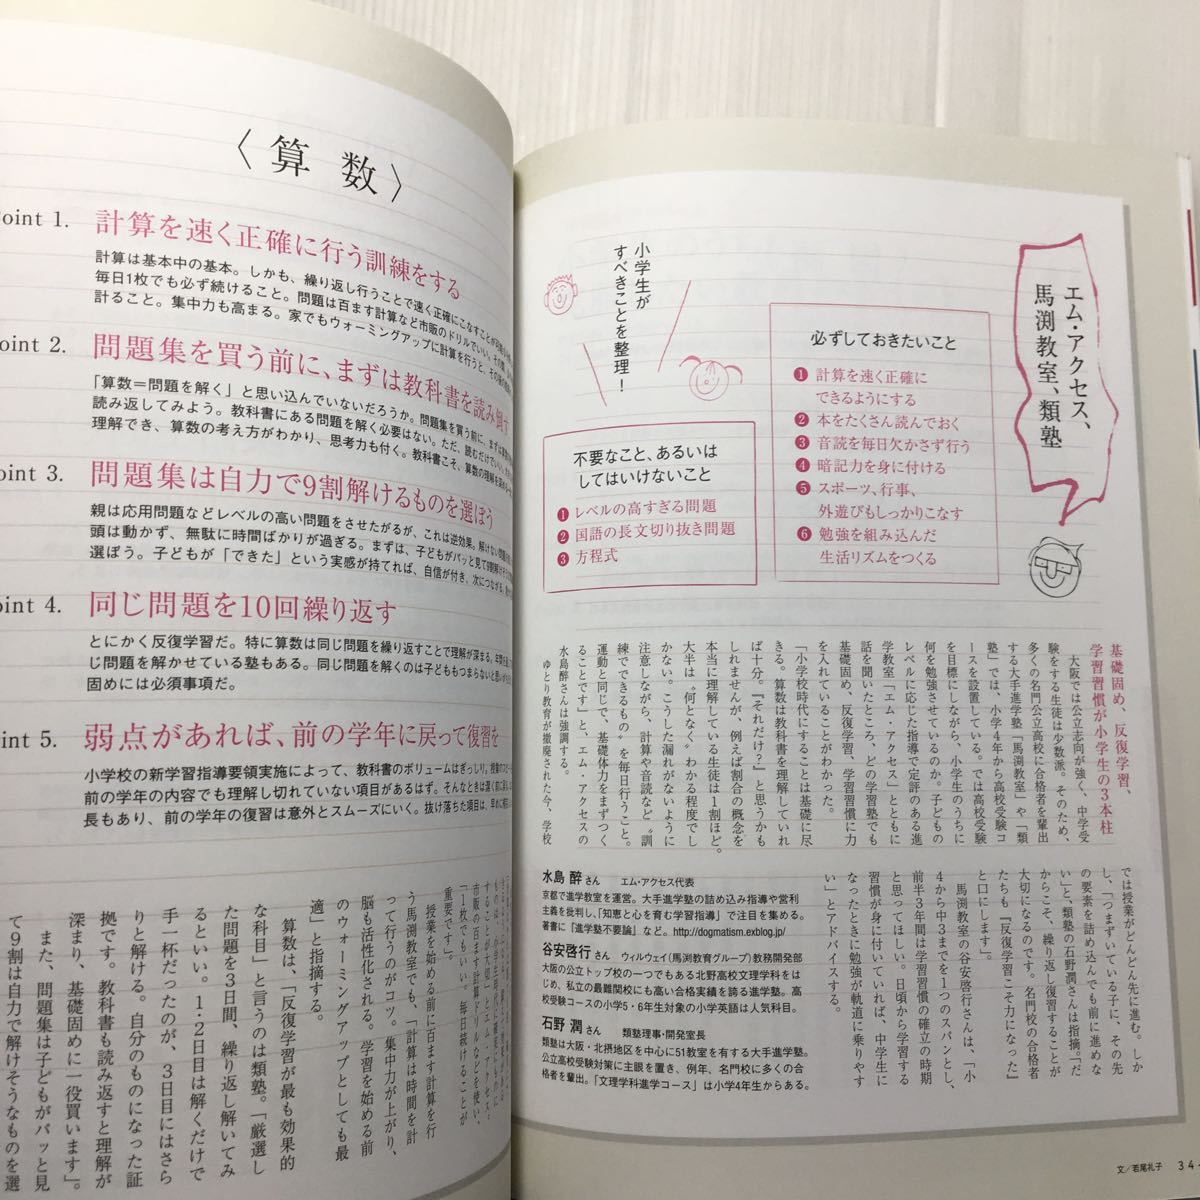 エム・アクセス、
馬渕教室、類塾
小学生が
すべきことを整理！
必ずしておきたいこと
❶ 計算を速く正確に
できるようにする
❷ 本をたくさん読んでおく
❸ 音読を毎日欠かさず行う
❹ 暗記力を身に付ける
❺ スポーツ、行事、
外遊びもしっかりこなす
❻ 勉強を組み込んだ
生活リズムをつくる
不要なこと、あるいは
してはいけないこと
❶ レベルの高すぎる問題
❷ 国語の長文切り抜き問題
❸ 方程式
基礎固め、反復学習、
学習習慣が小学生の3本柱
大阪では公立志向が強く、中学受
験をする生徒は少数派。そのため、
多くの名門公立高校に合格者を輩出
する大手進学塾「馬渕教室」や「類
塾」では、小学4年から高校受験コ
ースを設置している。では高校受験
を目標にしながら、小学生のうちに
何を勉強させているのか。子どもの
レベルに応じた指導で定評のある進
学教室「エム・アクセス」とともに
話を聞いたところ、どの学習塾でも
基礎固め、反復学習、学習習慣に力
を入れていることがわかった。
「小学校時代にすることは基礎に尽
きる。算数は教科書を理解していれ
ば十分。『それだけ？』と思うかも
しれませんが、例えば割合の概念を
本当に理解している生徒は1割ほど。
大半は〝何となく〟わかる程度でし
かない。こうした漏れがないように
注意しながら、計算や音読など〝訓
練でできるもの〟を毎日行うこと。
運動と同じで、基礎体力をまずつく
ることです」と、エム・アクセスの
水島醉さんは強調する。
ゆとり教育が撤廃された今、学校
では授業がどんどん先に進む。しか
し、「つまずいている子に、その先
の要素を詰め込んでも前に進めな
い」と、類塾の石野潤さんは指摘。「だ
からこそ、繰り返し復習することが
大切になるのです。名門校の合格者
たちも『反復学習こそ力になった』
と口にします」
馬渕教室の谷安啓行さんは、「小
4から中3までを1つのスパンとし、
前半3年間は学習習慣の確立の時期
と思ってほしい。日頃から学習する
習慣が身に付いていれば、中学生に
なったときに勉強が軌道に乗りやす
い」とアドバイスする。
水島 醉さん エム・アクセス代表
京都で進学教室を運営。大手進学塾の詰め込み指導や営利
主義を批判し、「知恵と心を育む学習指導」で注目を集める。
著書に「進学塾不要論」など。http://dogmatism.exblog.jp/
谷安啓行さん ウィルウェイ(馬渕教育グループ)教務開発部
大阪の公立トップ校の一つでもある北野高校文理学科をは
じめ、私立の最難関校にも高い合格実績を誇る進学塾。高
校受験コースの小学5・6年生対象の小学英語は人気科目。
石野 潤さん 類塾理事・開発室長
類塾は大阪・北摂地区を中心に51教室を有する大手進学塾。
公立高校受験対策に主眼を置き、例年、名門校に多くの合
格者を輩出。「文理学科進学コース」は小学4年生からある。
文／若尾礼子
34
〈算数〉
oint 1. 計算を速く正確に行う訓練をする
計算は基本中の基本。しかも、繰り返し行うことで速く正確にこなすことが
毎日1枚でも必ず続けること。問題は百ます計算など市販のドリルでいい。その
計ること。集中力も高まる。家でもウォーミングアップに計算を行うと、その後の
oint 2. 問題集を買う前に、まずは教科書を読み倒す
「算数＝問題を解く」と思い込んでいないだろうか。問題集を買う前に、まずは
読み返してみよう。教科書にある問題を解く必要はない。ただ、読むだけでいい。
理解でき、算数の考え方がわかり、思考力も付く。教科書こそ、算数の理解を深め
oint 3. 問題集は自力で9割解けるものを選ぼう
親は応用問題などレベルの高い問題をさせたがるが、これは逆効果。解けない問題
頭は動かず、無駄に時間ばかりが過ぎる。まずは、子どもがパッと見て9割解け
選ぼう。子どもが「できた」という実感が持てれば、自信が付き、次につながる。
oint 4. 同じ問題を10回繰り返す
とにかく反復学習だ。特に算数は同じ問題を繰り返すことで理解が深まる。年間を通し
じ問題を解かせている塾もある。同じ問題を解くのは子どももつまらないと思い
固めには必須事項だ。
oint 5. 弱点があれば、前の学年に戻って復習を
小学校の新学習指導要領実施によって、教科書のボリュームはぎっしり。授業のスピー
前の学年の内容でも理解し切れていない項目があるはず。そんなときは潔く前に戻
長もあり、前の学年の復習は意外とスムーズにいく。抜け落ちた項目は、早めに補
することが大切」とエム・アクセス。
市販の百ます計算ドリルなどを使い、
「1枚でもいい。毎日続けることが
重要です」
授業を始める前に百ます計算を行
う馬渕教室でも、「計算は時間を計
って行うのがコツ。集中力が上がり、
脳も活性化される。学習を始める前
のウォーミングアップとしても最
適」と指摘する。
算数は、「反復学習が最も効果的
な科目」と言うのは類塾。「厳選し
た問題を3日間、繰り返し解いてみ
るといい。1・2日目は解くだけで
手一杯だったのが、3日目にはさら
りと解ける。自分のものになった証
拠です。教科書も読み返すと理解が
深まり、基礎固めに一役買います」。
また、問題集は子どもがパッと見
て9割は自力で解けそうなものを選